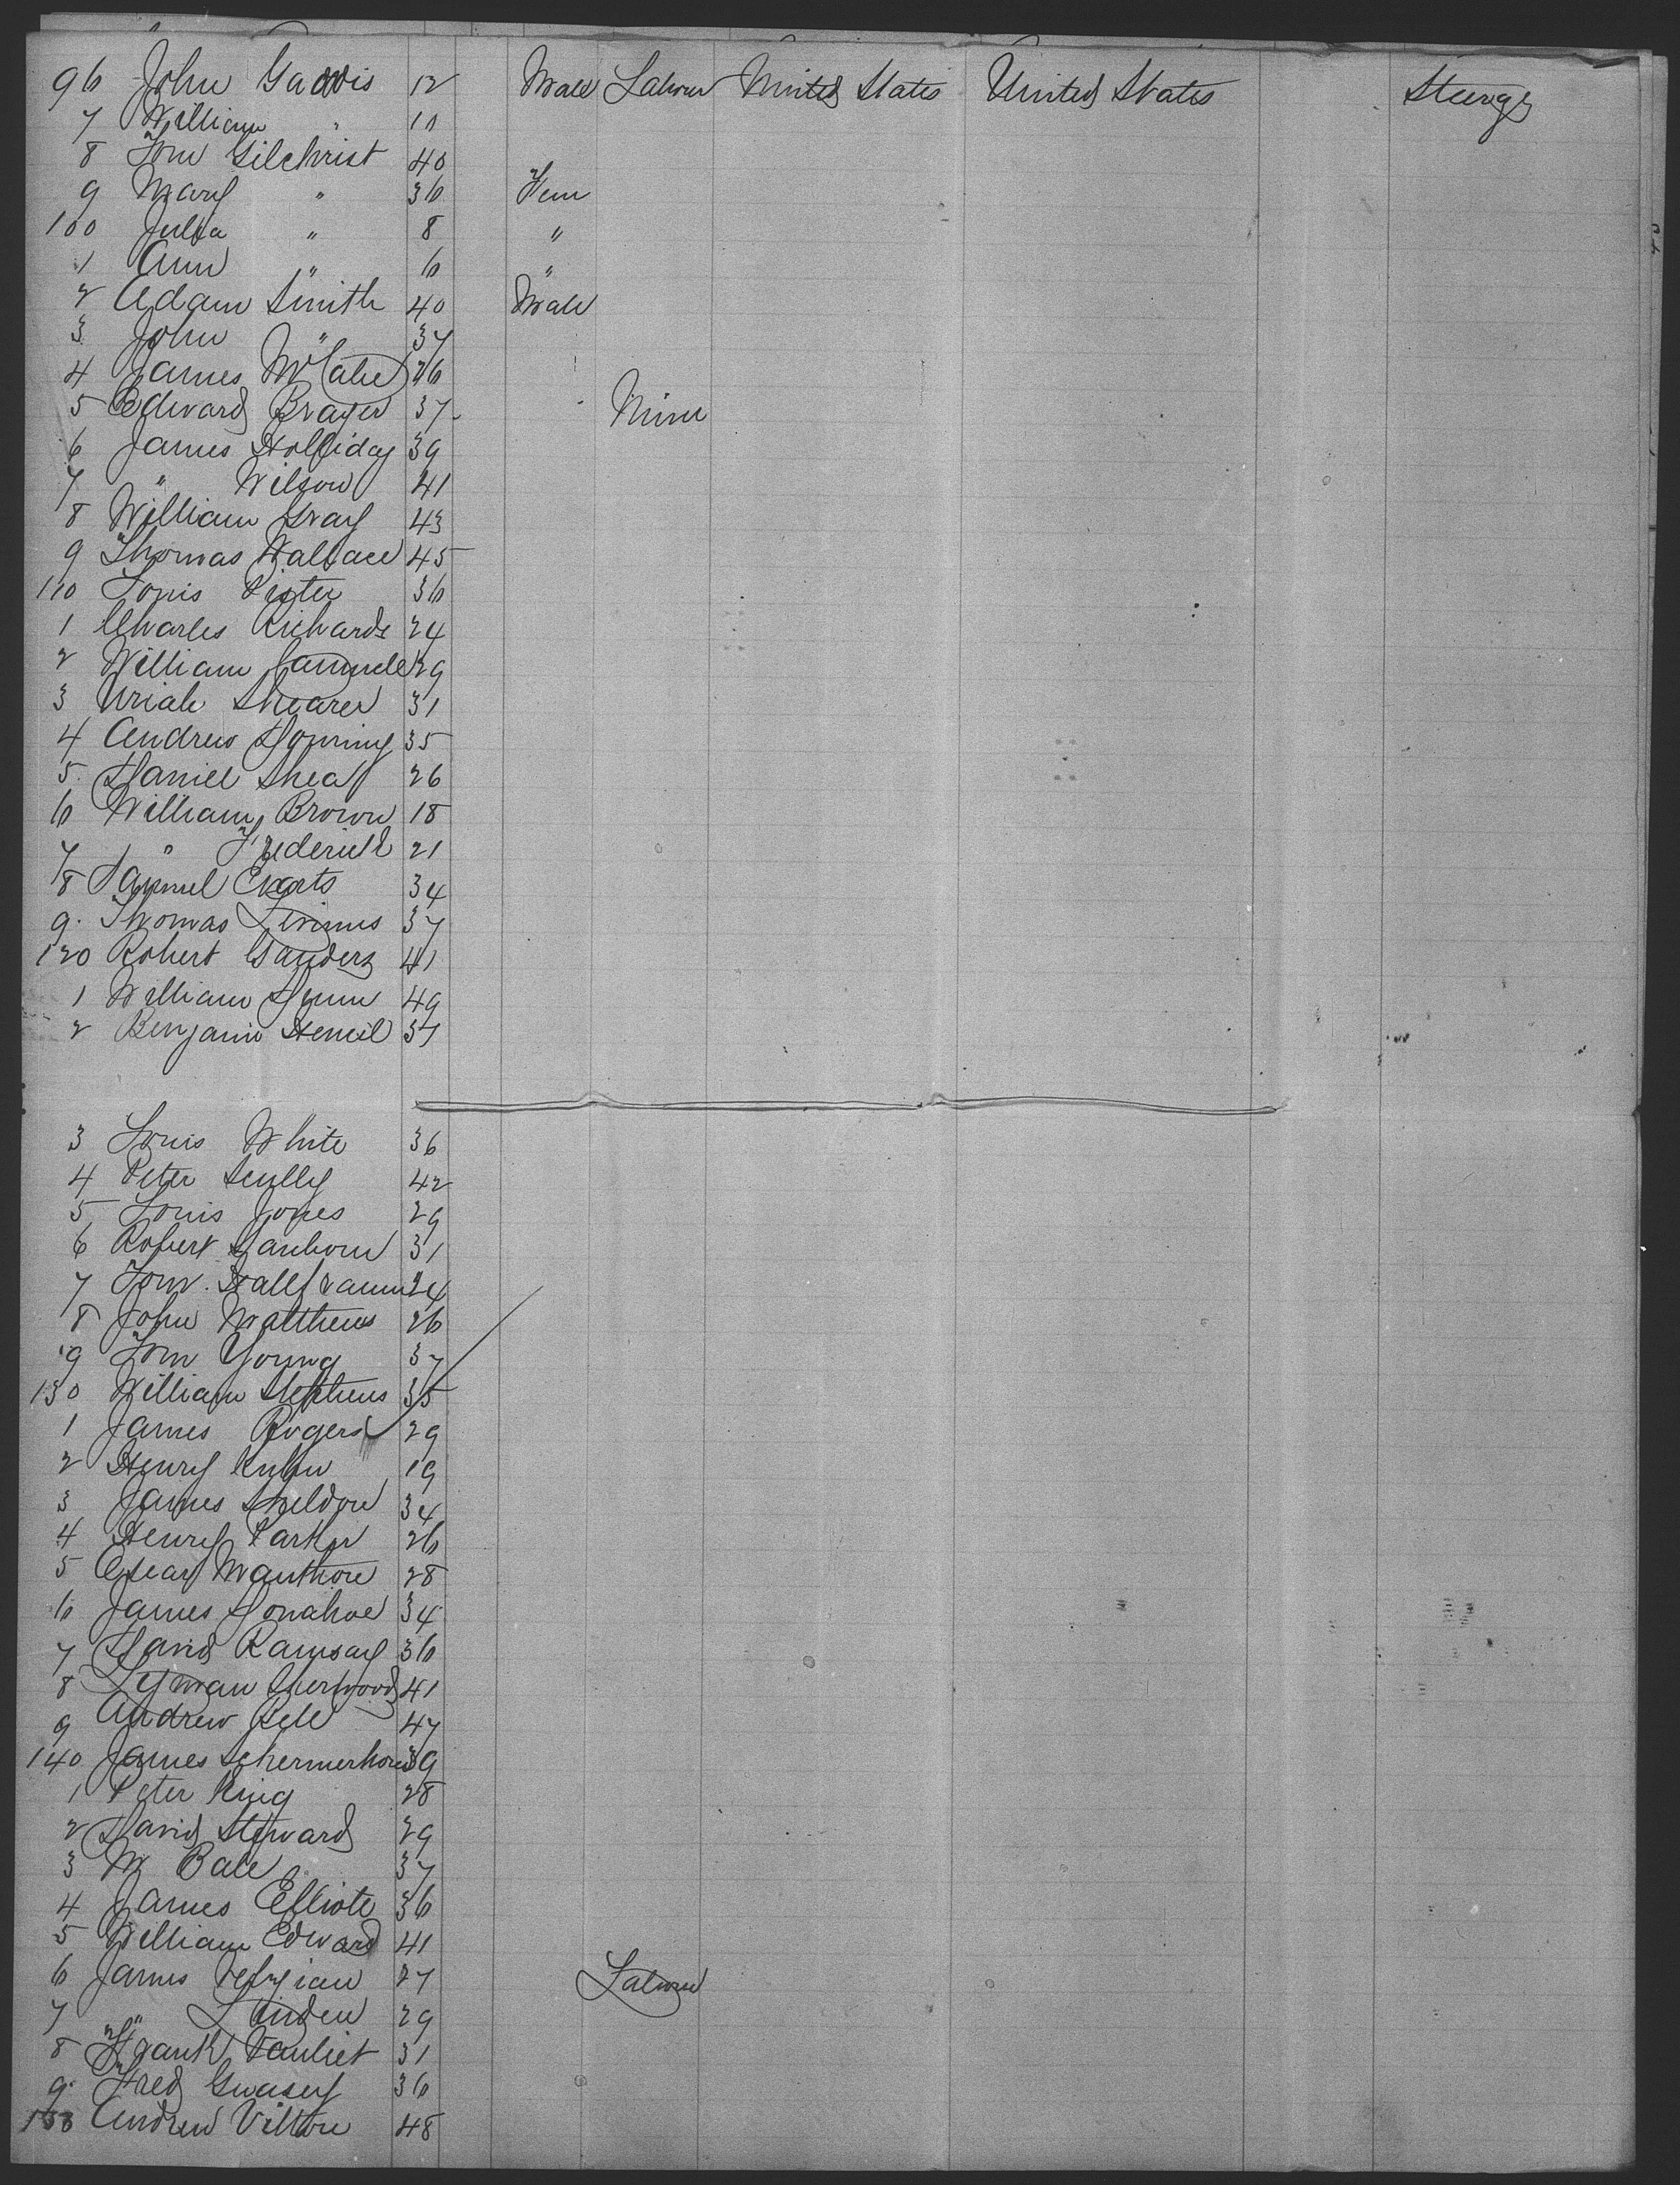 96 John Gaddis 12 Male Labour United States United States Steerage
7 William " 10
8 Tom Gilchrist 40
9 Mary " 36 Fem
100 Julia " 8 "
1 Ann " 6 "
2 Adam Smith 40 Male
3 John " 37
4 James McCabe 26
5 Edward Brayer 37 Miner
6 James Holliday 39
7 " Wilson 41
8 William Gray 43
9 Thomas Wallace 45
110 Louis Pister 36
1 Charles Richards 24
2 William Cammele 29
3 Uriah Shearer 31
4 Andrew Downing 35
5 Daniel Shea 26
6 William Brown 18
7 " Frederick 21
8 Samuel Evarts 34
9 Thomas 37
120 Robert Sanders 41
1 William Dunn 49
2 Benjamin 37
3 Louis White 36
4 Peter Scully 42
5 Louis Jones 29
6 Robert Sanborn 31
7 Tom 24
8 John Matthews 26
9 Tom Young 37
130 William Stephens 35
1 James Rogers 29
2 Henry Kuhn 19
3 James Sheldon 34
4 Henry Parker 26
5 Oscar 28
6 James Donahoe 34
7 David Ramsay 36
8 Lyman Sherwood 41
9 Andrew Bell 47
140 James Schermerhorn 39
1 Peter King 28
2 David Steward 29
3 W Bale 37
4 James Elliote 36
5 William Edward 41
6 James 27 Labour
7 " Linden 29
8 Frank Vanliet 31
9 Fred 36
150 Andrew 48